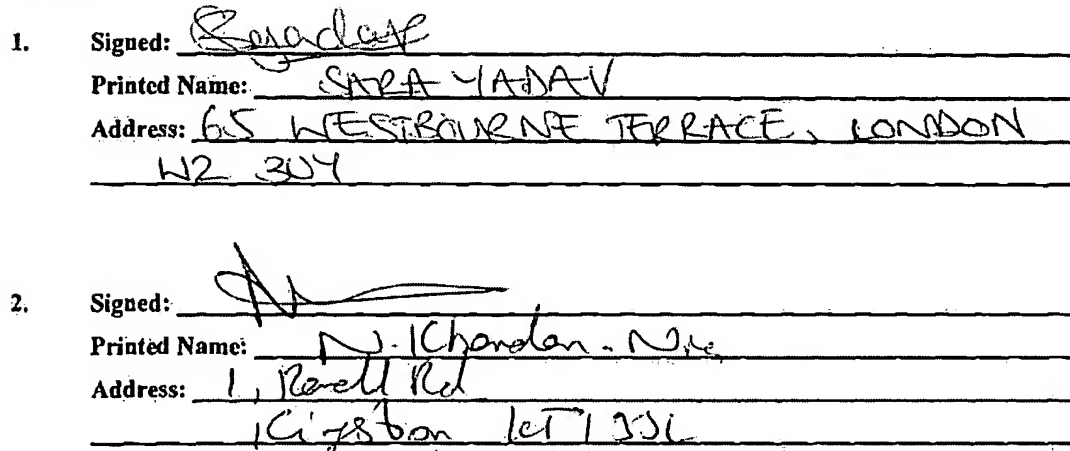 1. Signed:
Printed Name: SARA YADAV
Address: 65 WESTBOURNE TERRACE, LONDON
W2 3UY
2. Signed:
Printed Name: N. Khandan.
Address: 1, Rd
Kingston KT1